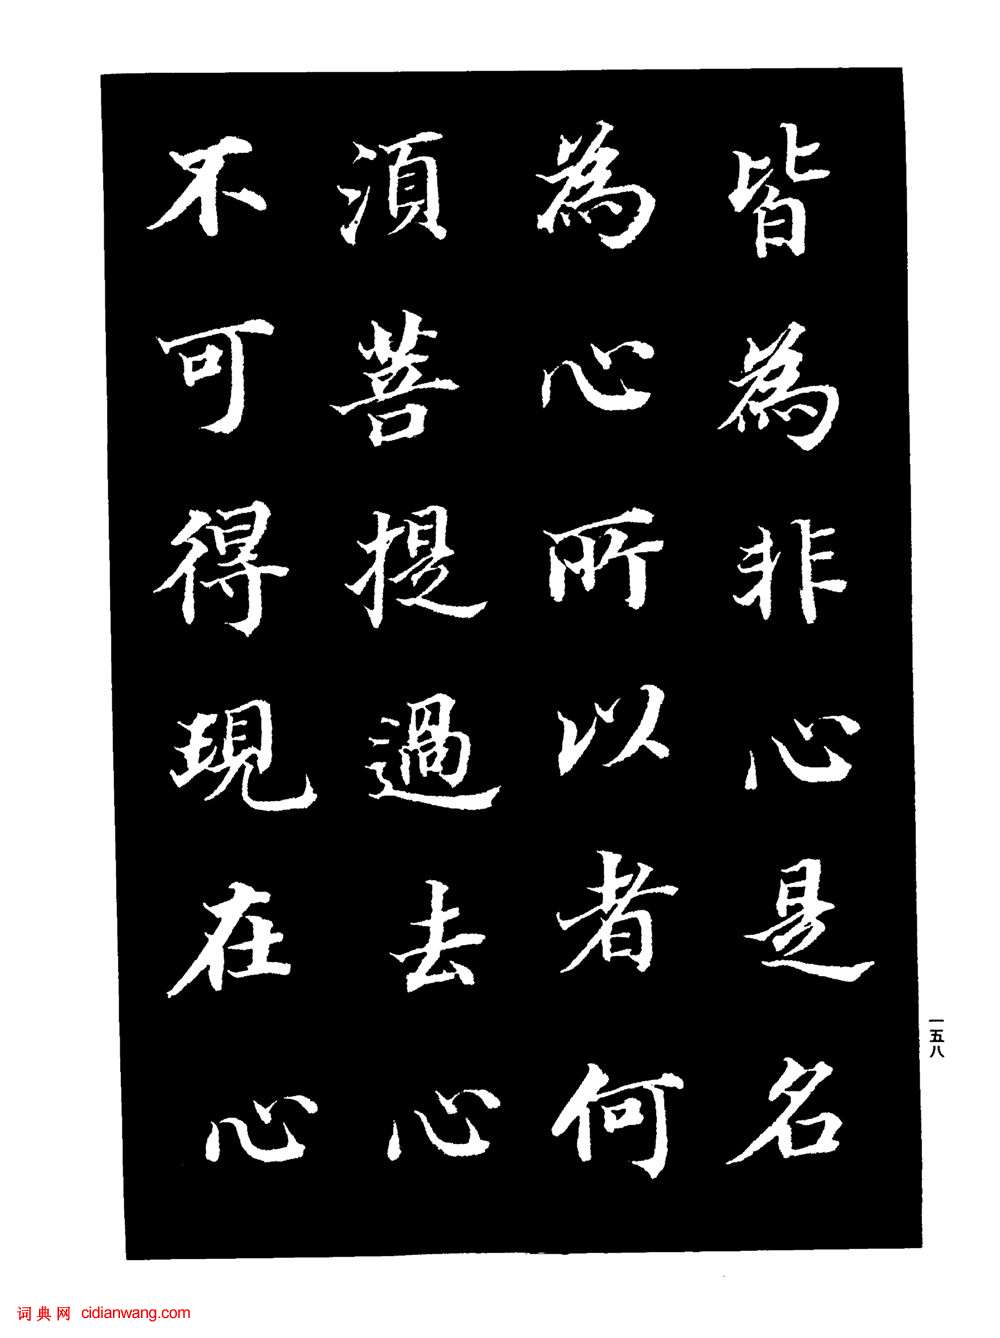 皆為非心是名
為心所以者何
湏菩提過去心
不可得現在心
一五八
词典网 cidianwang.com